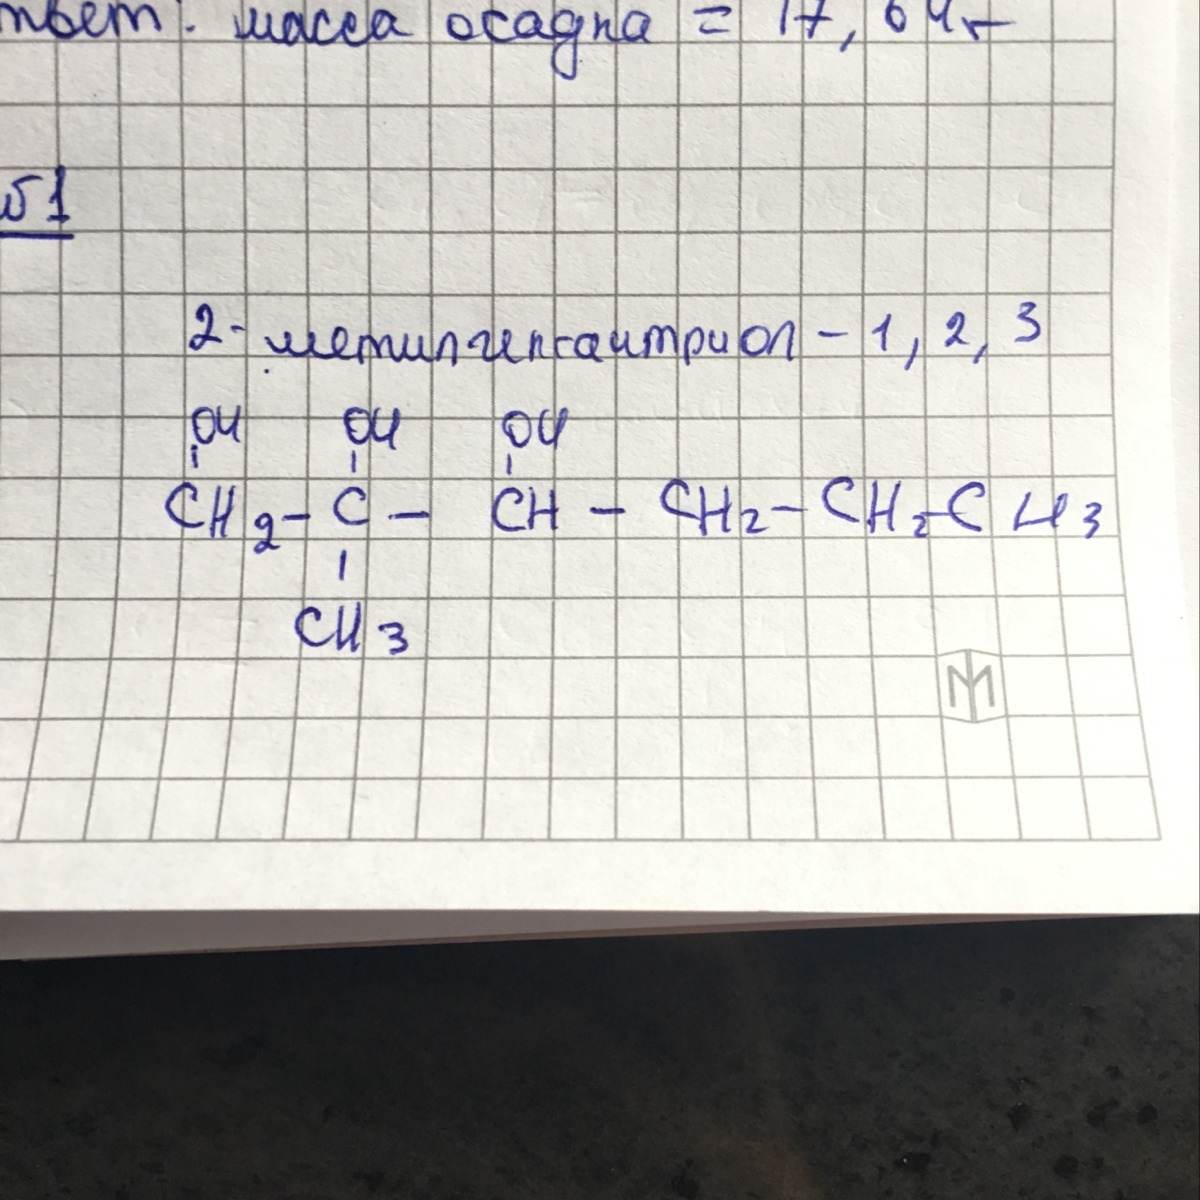 твет: масса осадка = 17,64г
№1
2-метилгептантриол-1,2,3
OH OH OH
CH2-C-CH-CH2-CH2-CH3
CH3